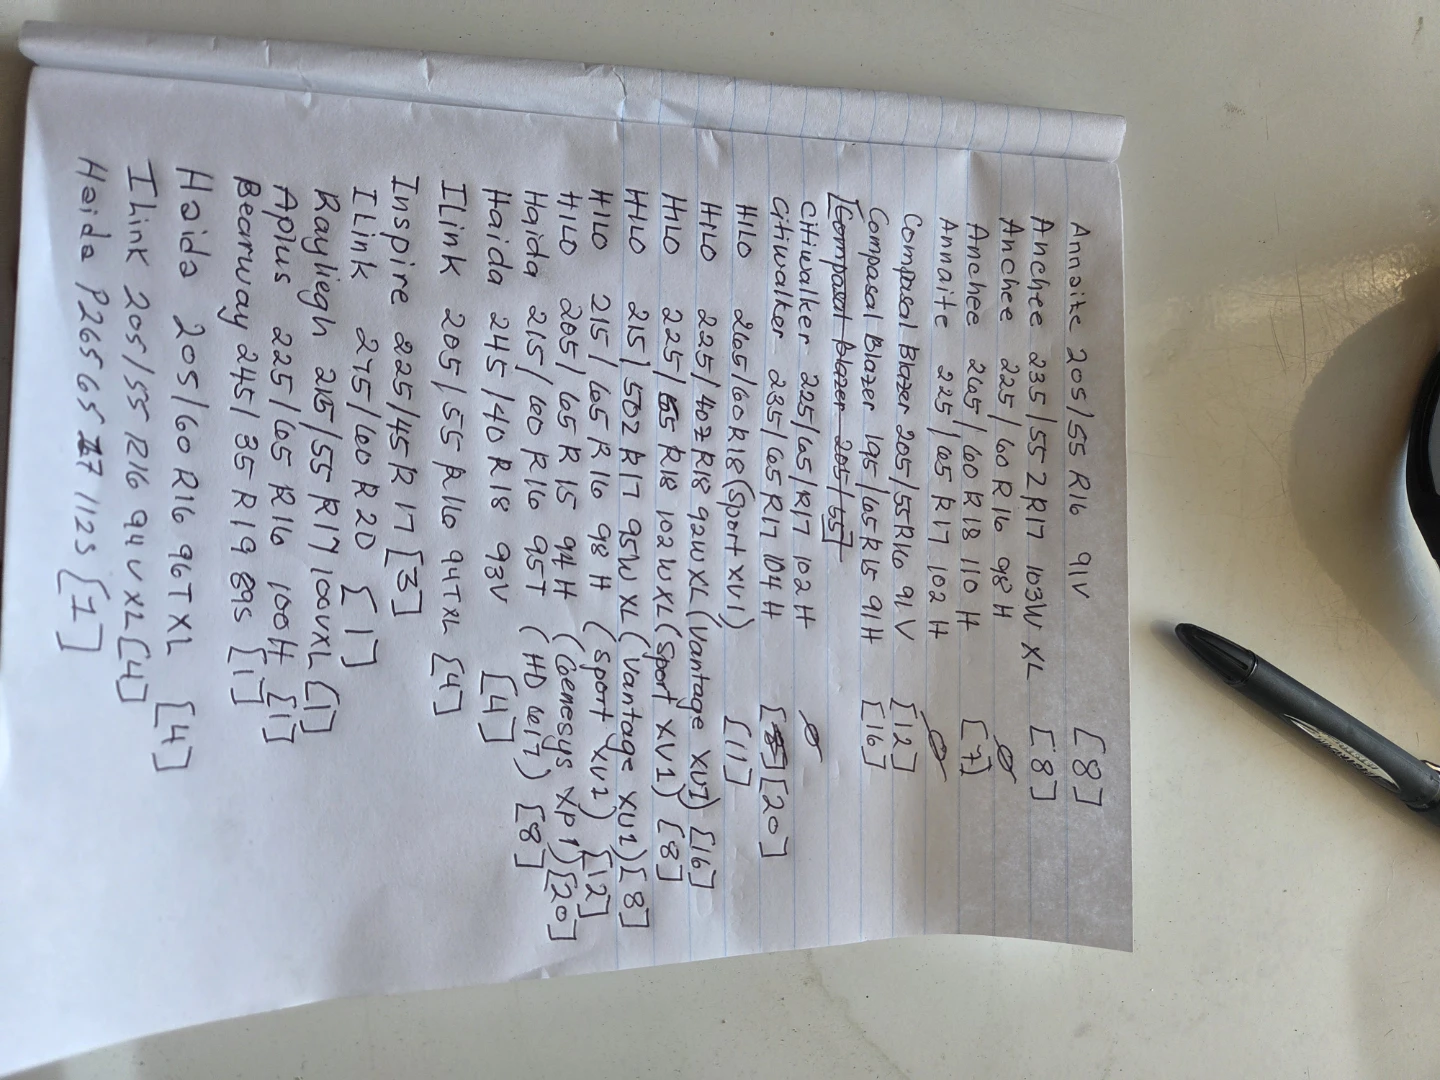 Annaite 205/55 R16 91V [8]
Anchee 235/55ZR17 103W XL [8]
Anchee 225/60R16 98H Ø
Anchee 265/60R18 110H [7]
Annaite 225/65R17 102H Ø
Compasal Blazer 205/55R16 91V [12]
Compasal Blazer 195/65R15 91H [16]
[Compasal blazer 205/55]
Citiwalker 225/65/R17 102H Ø
Citiwalker 235/65R17 104H [20]
HILO 265/60R18 (Sport XV1) [11]
HILO 225/40ZR18 92W XL (Vantage XU1) [16]
HILO 225/55R18 102W XL (Sport XV1) [8]
HILO 215/50ZR17 95W XL (Vantage XU1) [8]
HILO 215/65R16 98H (Sport XV1) [12]
HILO 205/65R15 94H (Genesys XP1) [20]
Haida 215/60R16 95T (HD 617) [8]
Haida 245/40R18 93V [4]
ILink 205/55R16 94T XL [4]
Inspire 225/45R17 [3]
ILink 275/60R20 [1]
Rayliegh 215/55R17 100V XL [1]
Aplus 225/65R16 100H [1]
Bearway 245/35R19 89S [1]
Haida 205/60R16 96T XL [4]
ILink 205/55R16 94V XL [4]
Haida P265 65 17 112S [1]